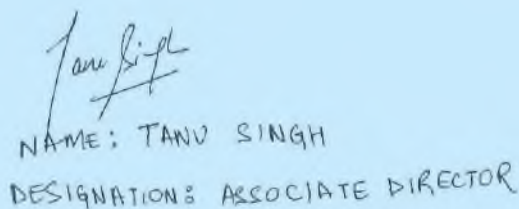 Tanu Singh
NAME: TANU SINGH
DESIGNATION: ASSOCIATE DIRECTOR